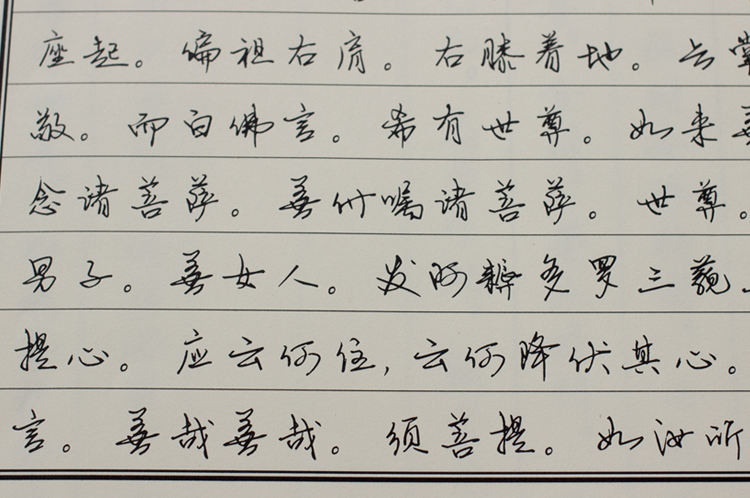 座起。偏袒右肩。右膝着地。合掌
敬。而白佛言。希有世尊。如来
念诸菩萨。善付嘱诸菩萨。世尊。
男子。善女人。发阿耨多罗三藐
提心。应云何住,云何降伏其心。
言。善哉善哉。须菩提。如汝所